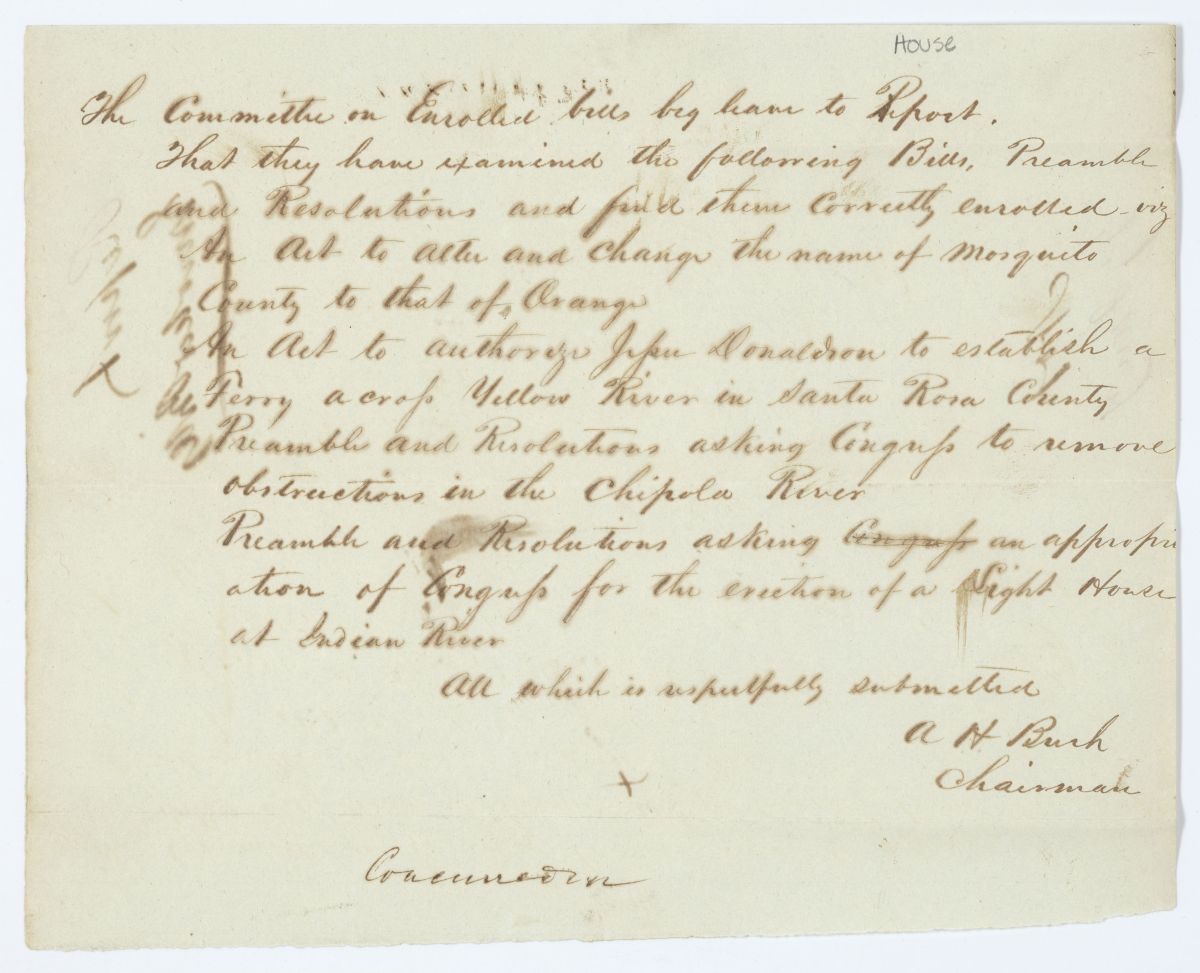 House
The Committee on Enrolled bills beg leave to Report.
That they have examined the following Bills, Preamble
and Resolutions and find them Correctly enrolled viz
An Act to alter and change the name of Mosquito
County to that of Orange
An Act to authorize Jesse Donaldson to establish a
Ferry across Yellow River in Santa Rosa County
Preamble and Resolutions asking Congress to remove
obstructions in the Chipola River
Preamble and Resolutions asking Congress an appropri
ation of Congress for the erection of a Light House
at Indian River
All which is respectfully submitted
A H Bush
Chairman
Concurred in